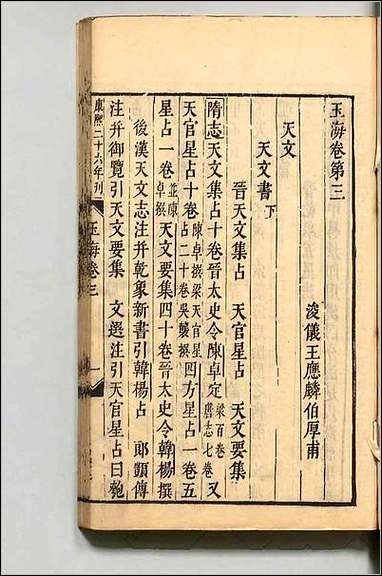 玉海卷第三
浚儀王應麟伯厚甫
天文
天文書下
晉天文集占 天官星占 天文要集
隋志天文集占十卷晉太史令陳卓定梁百卷唐志七卷又
天官星占十卷陳卓撰梁天官星占二十卷吳襲撰四方星占一卷五
星占一卷並陳卓撰天文要集四十卷晉太史令韓楊撰
後漢天文志注并乾象新書引韓楊占 郎顗傳
注并御覽引天文要集 文選注引天官星占曰匏
康熙二十六年刊 玉海卷三 一